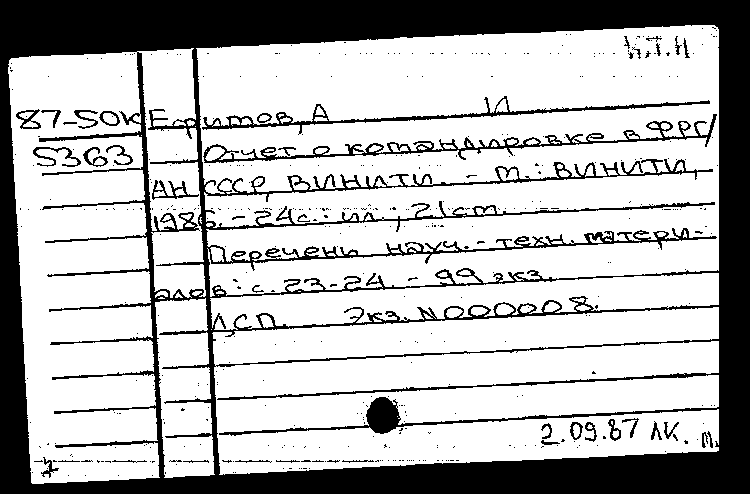 И.Т.Н
87-50К Ефимов, А И
5363 Отчет о командировке в ФРГ/
АН СССР, ВИНИТИ. - М.: ВИНИТИ,
1986. - 24с.: ил.; 21см. —
Перечень науч.-техн. матери-
алов: с. 23-24. - 99 экз.
ДСП. Экз. N000008.
2.09.87 ЛК. м.